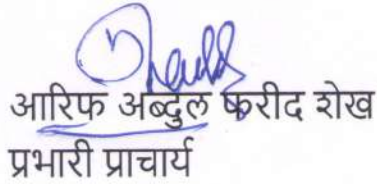 आरिफ अब्दुल फरीद शेख
प्रभारी प्राचार्य